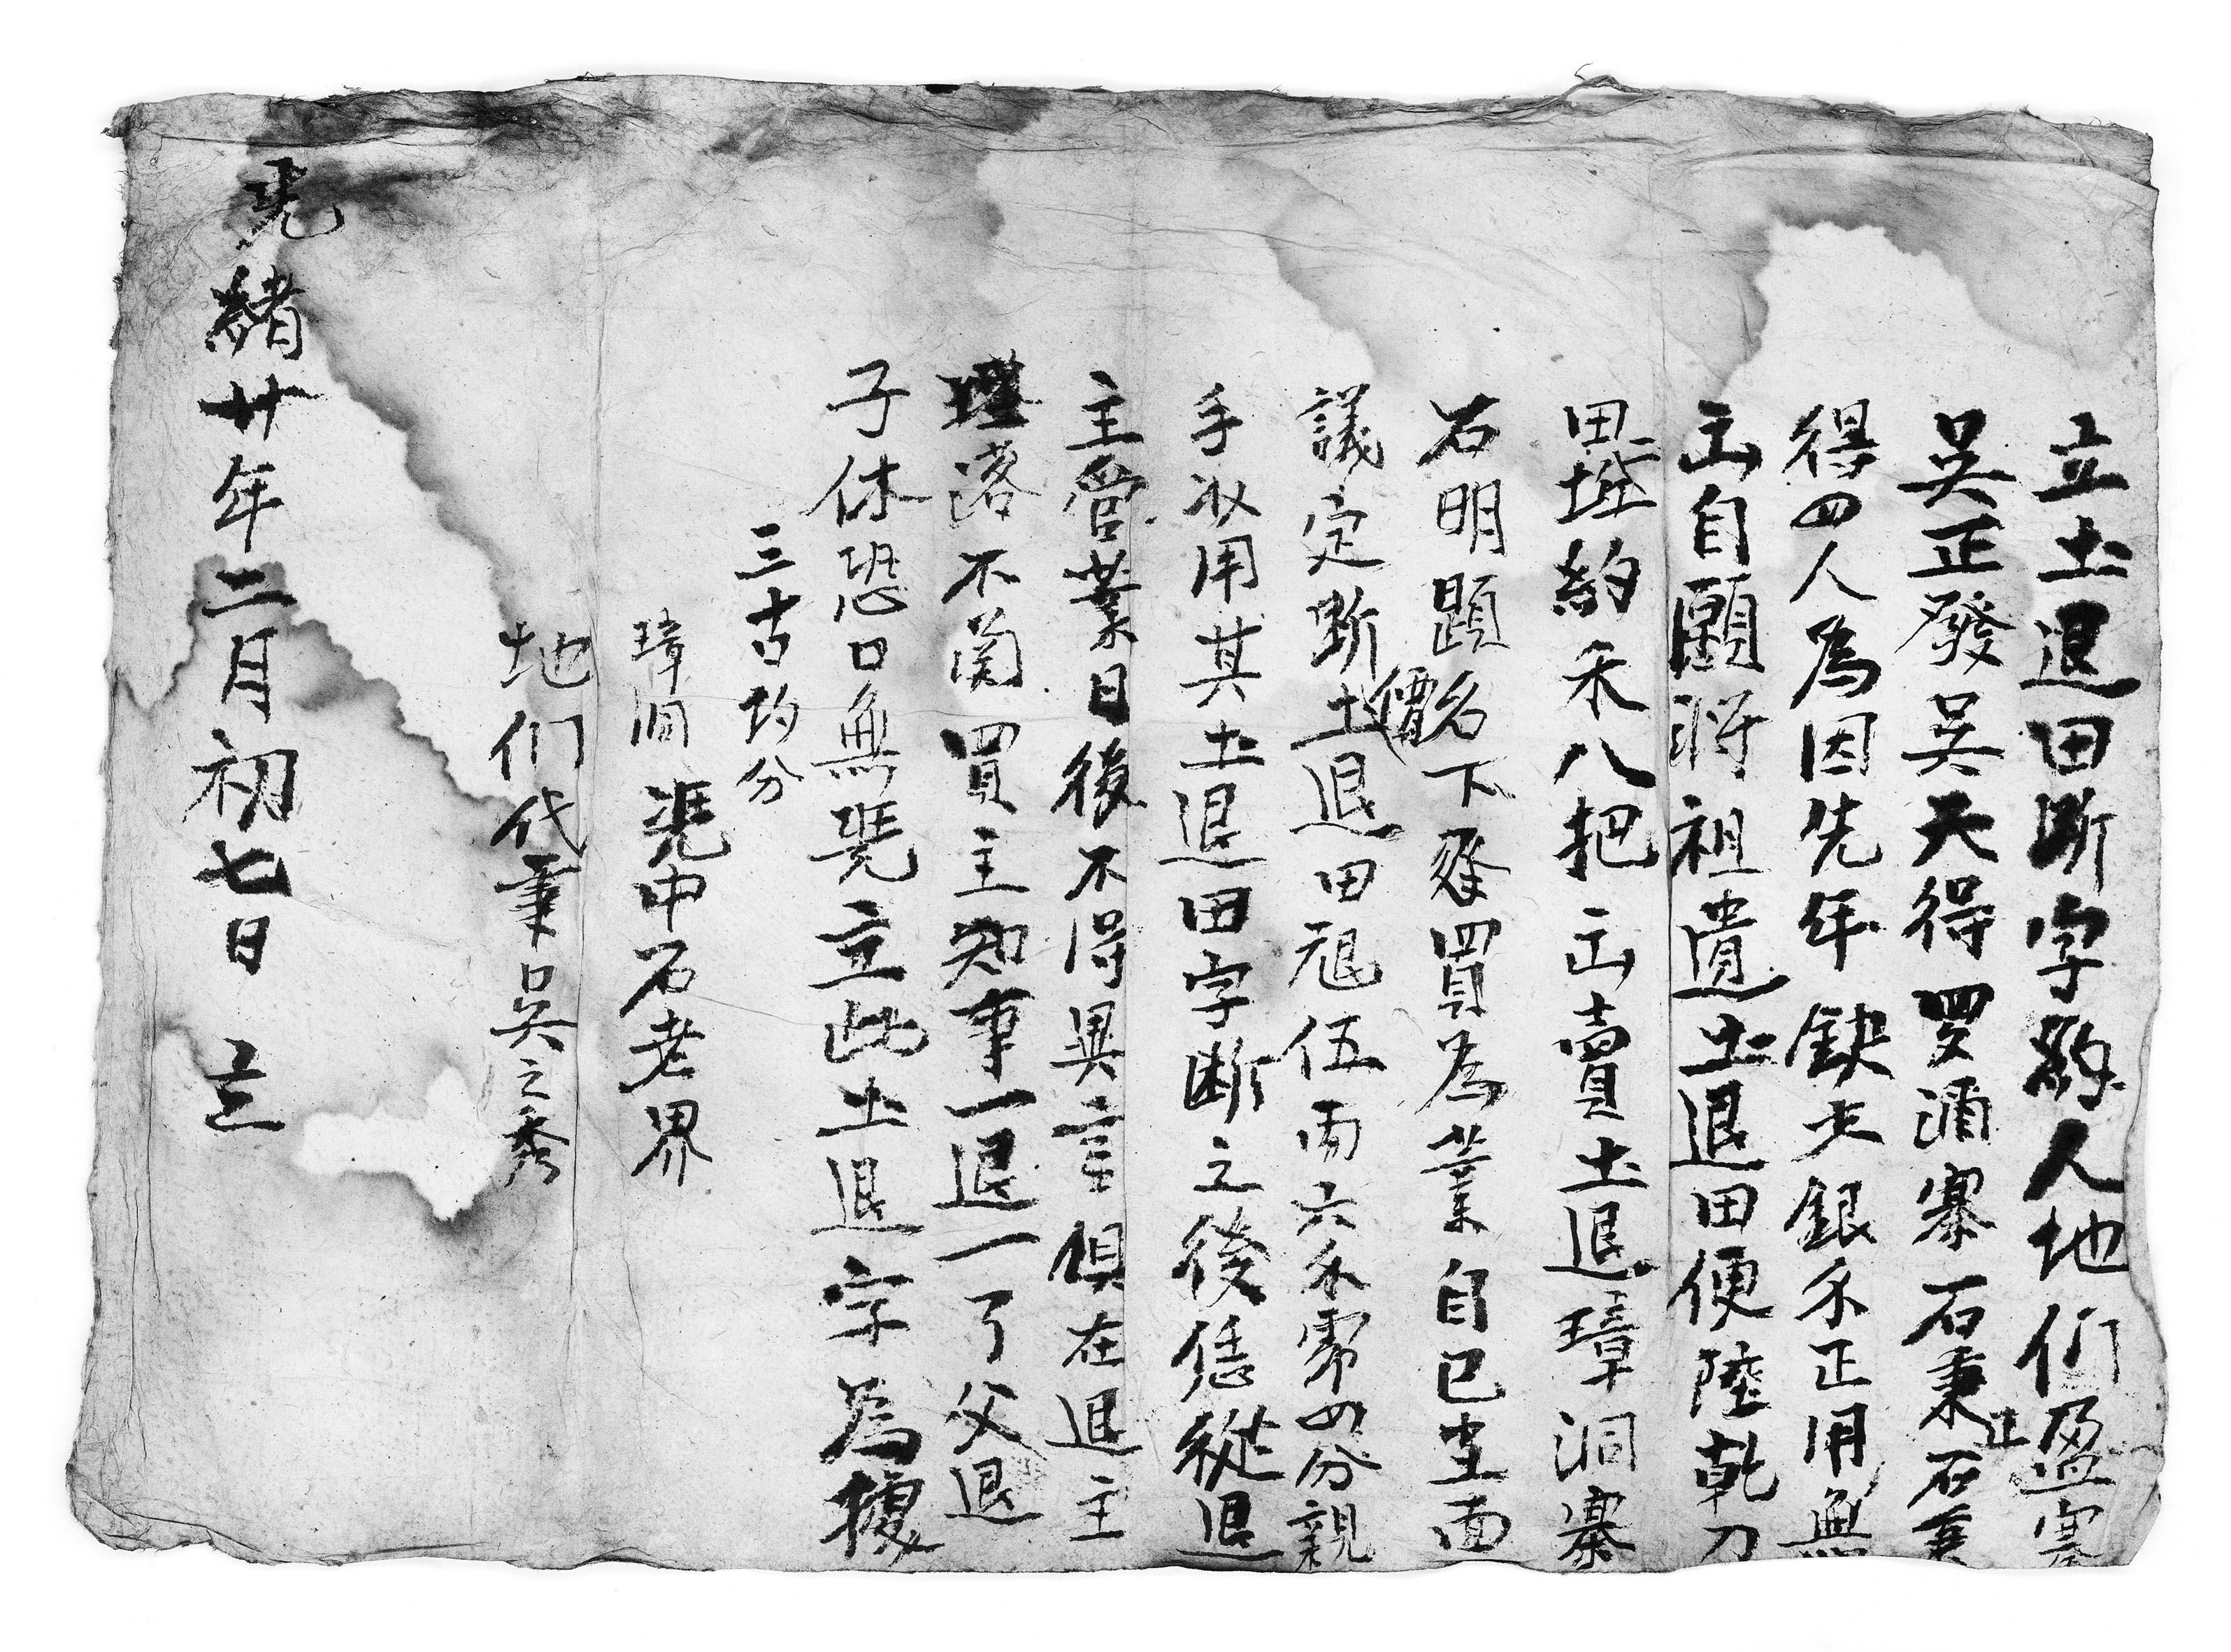 立土退田断字約人地们盈寨
吳正發吳天得罗滴寨石秉正石秉
得四人為因先年缺少銀禾正用無
出自願將祖遺土退田便陸乾刀
田二坵約禾八把出賣土退璋洞寨
石明題名下承買為業自己當面
議定断土退田價伍両六禾零四分親
手收用其土退田字断之後恁從退
主管業日後不得異言俱在退主
理落不関買主知事一退一了父退
子休恐口無凴立此土退字為據
三古均分
璋洞 凴中石老界
地们代筆吳之秀
光緒廿年二月初七日 立